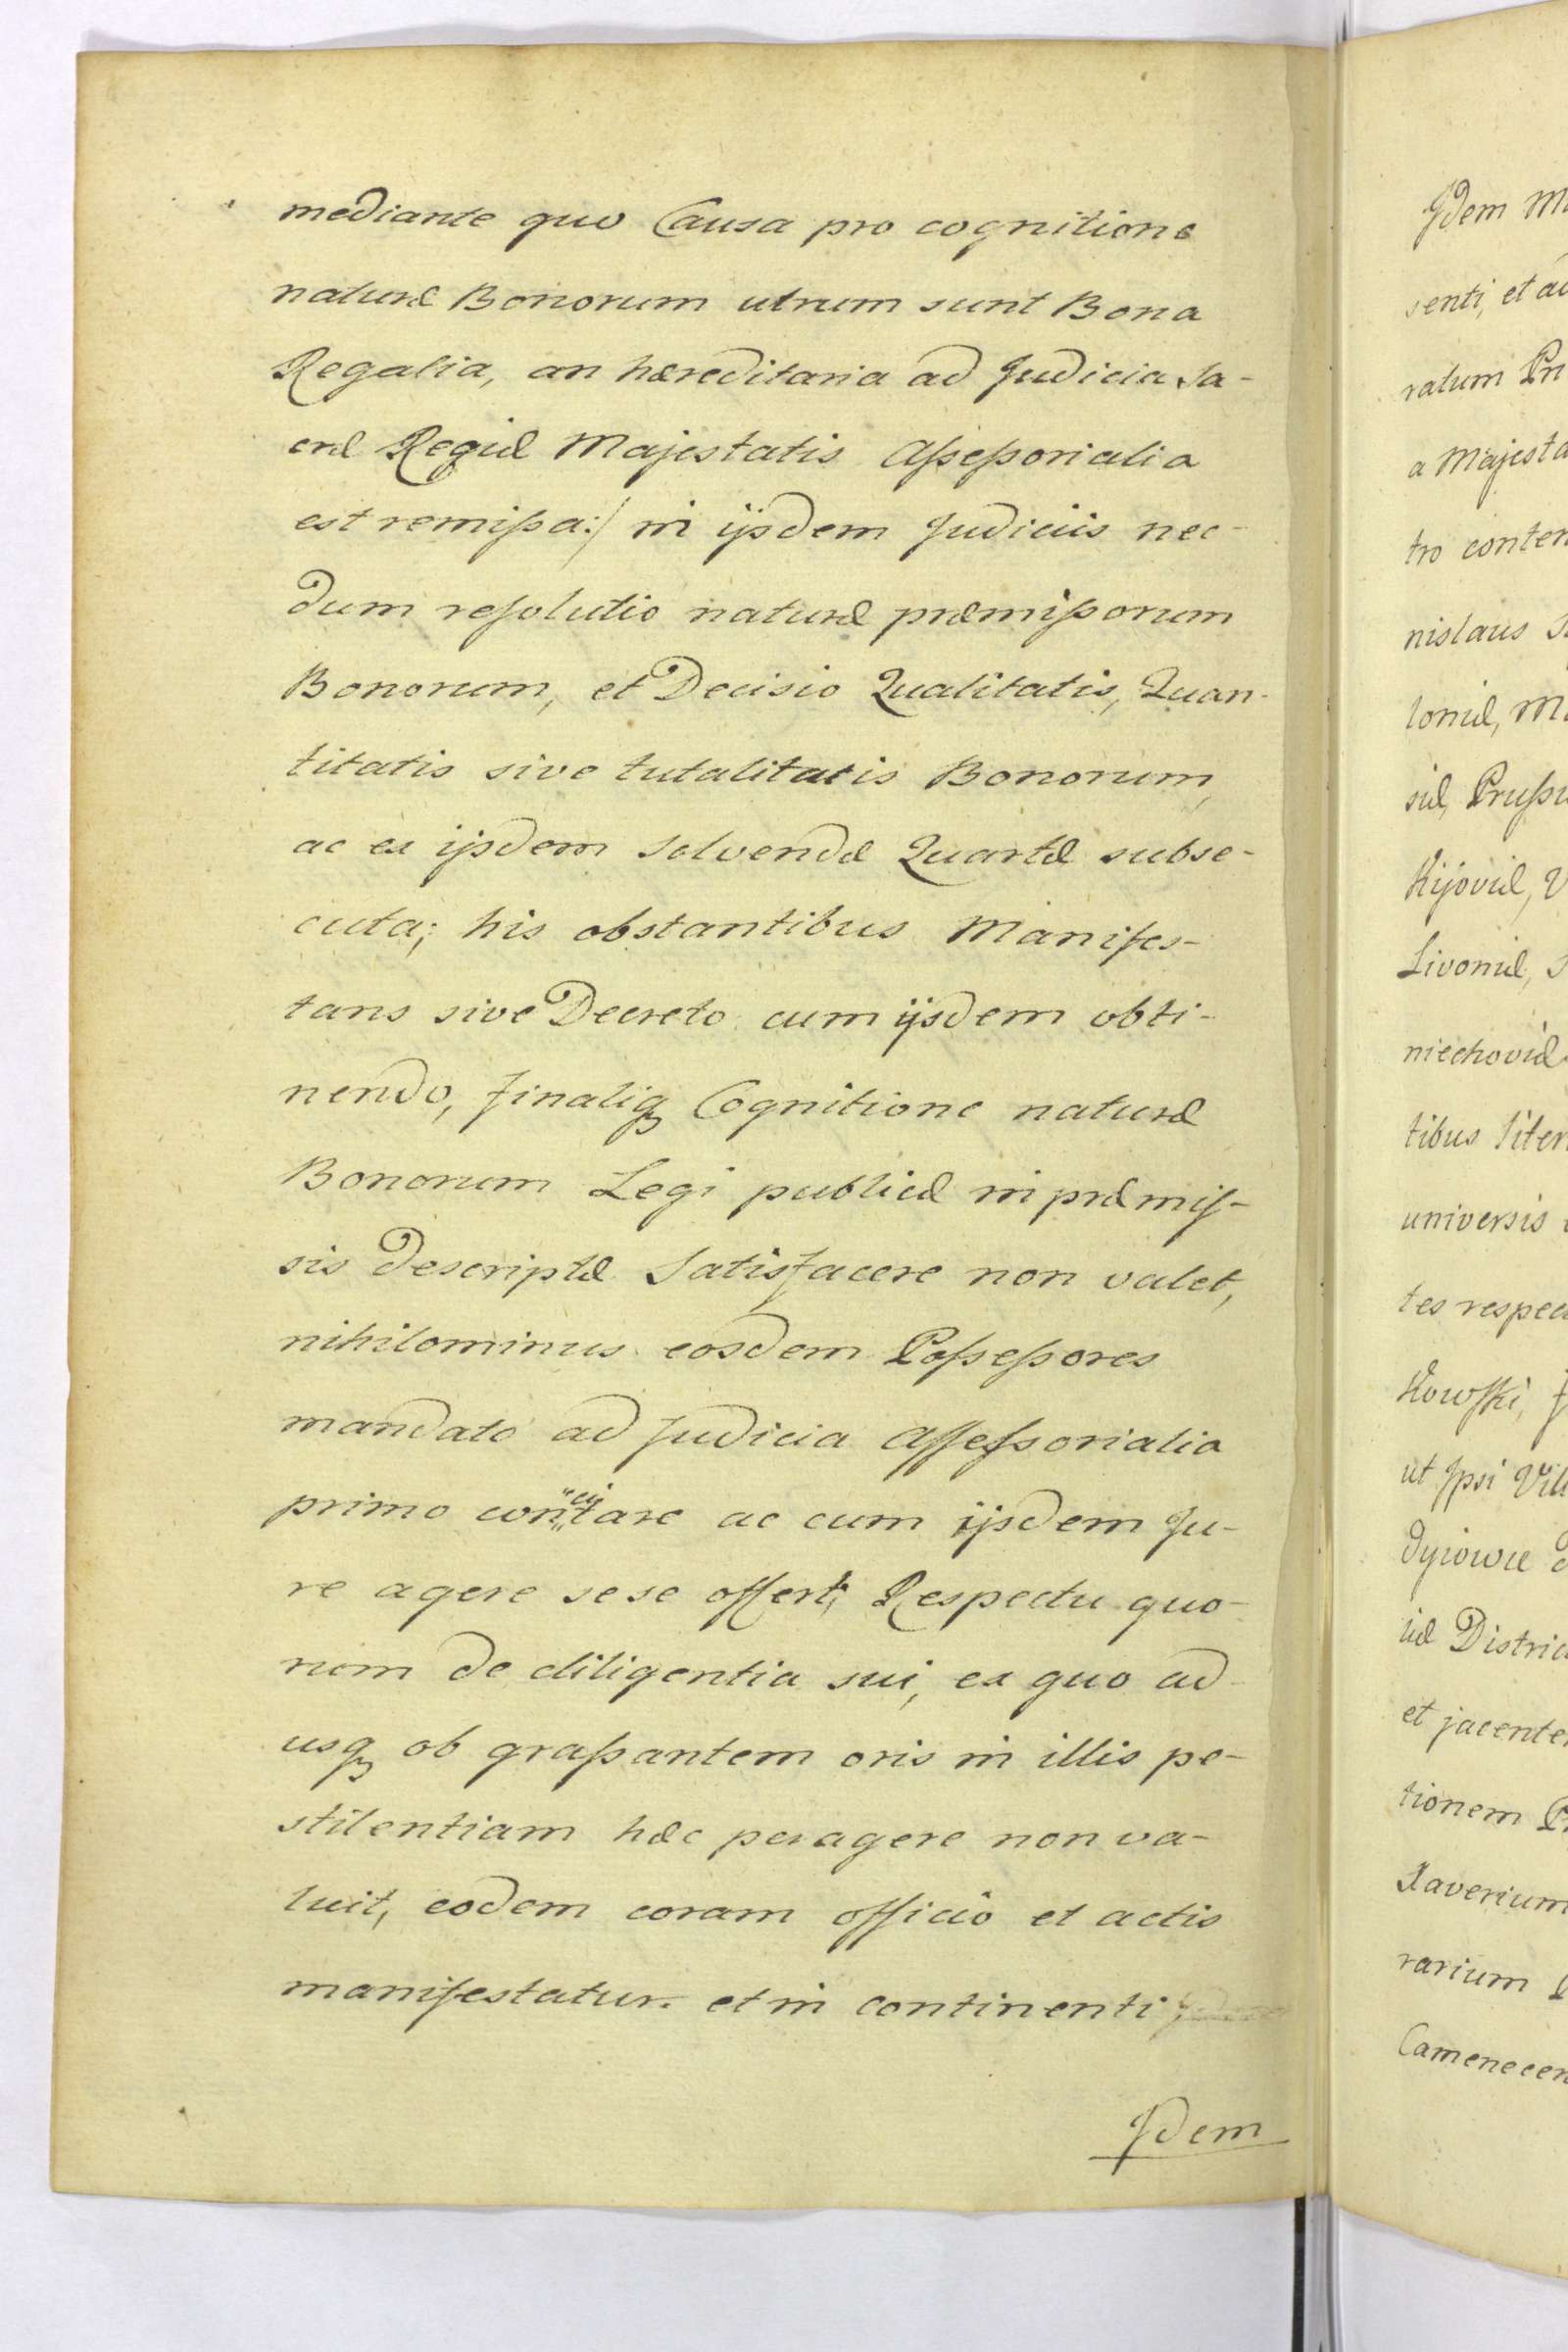 mediante quo Causa pro cognitione
naturæ Bonorum utrum sunt Bona
Regalia, an hæreditaria ad Judicia Sa-
cræ Regiæ Majestatis Aſseſsorialia
est remiſsa:/ in ijsdem Judiciis nec-
dum reſolutio naturæ præmiſsorum
Bonorum, et Decisio Qualitatis, Quan-
titatis sive tutalitatis Bonorum,
ac ex ijsdem solvendæ Quartæ subse-
cuta; his obstantibus Manifes-
tans sive Decreto cum ijsdem obti-
nendo, finaliq Cognitione naturæ
Bonorum Legi publicæ in præmiſ-
sis Descriptæ Satisfacere non valet,
nihilominus eosdem Poſseſsores
mandato ad Judicia Aſſeſsorialia
primo concitare ac cum ijsdem Ju-
re agere sese offert; Respectu quo-
rum de diligentia sui, ex quo ad
usq ob graſsantem oris in illis pe-
stilentiam hæc peragere non va-
luit, eodem coram officiô et actis
manifestatur. et in continenti
Jdem
Jdem M
senti, et ad
ratum Pri
a Majesta
tro conten
nislaus
toniæ, M
siæ, Pruſsi
Kijoviæ, V
Livoniæ, S
niechoviæ
tibus liter
universis
tes respec
kowſki, J
ut Jpsi Vill
dyiowce
liæ Distric
et jacente
tionem P
Xaverium
rarium
Camenecen